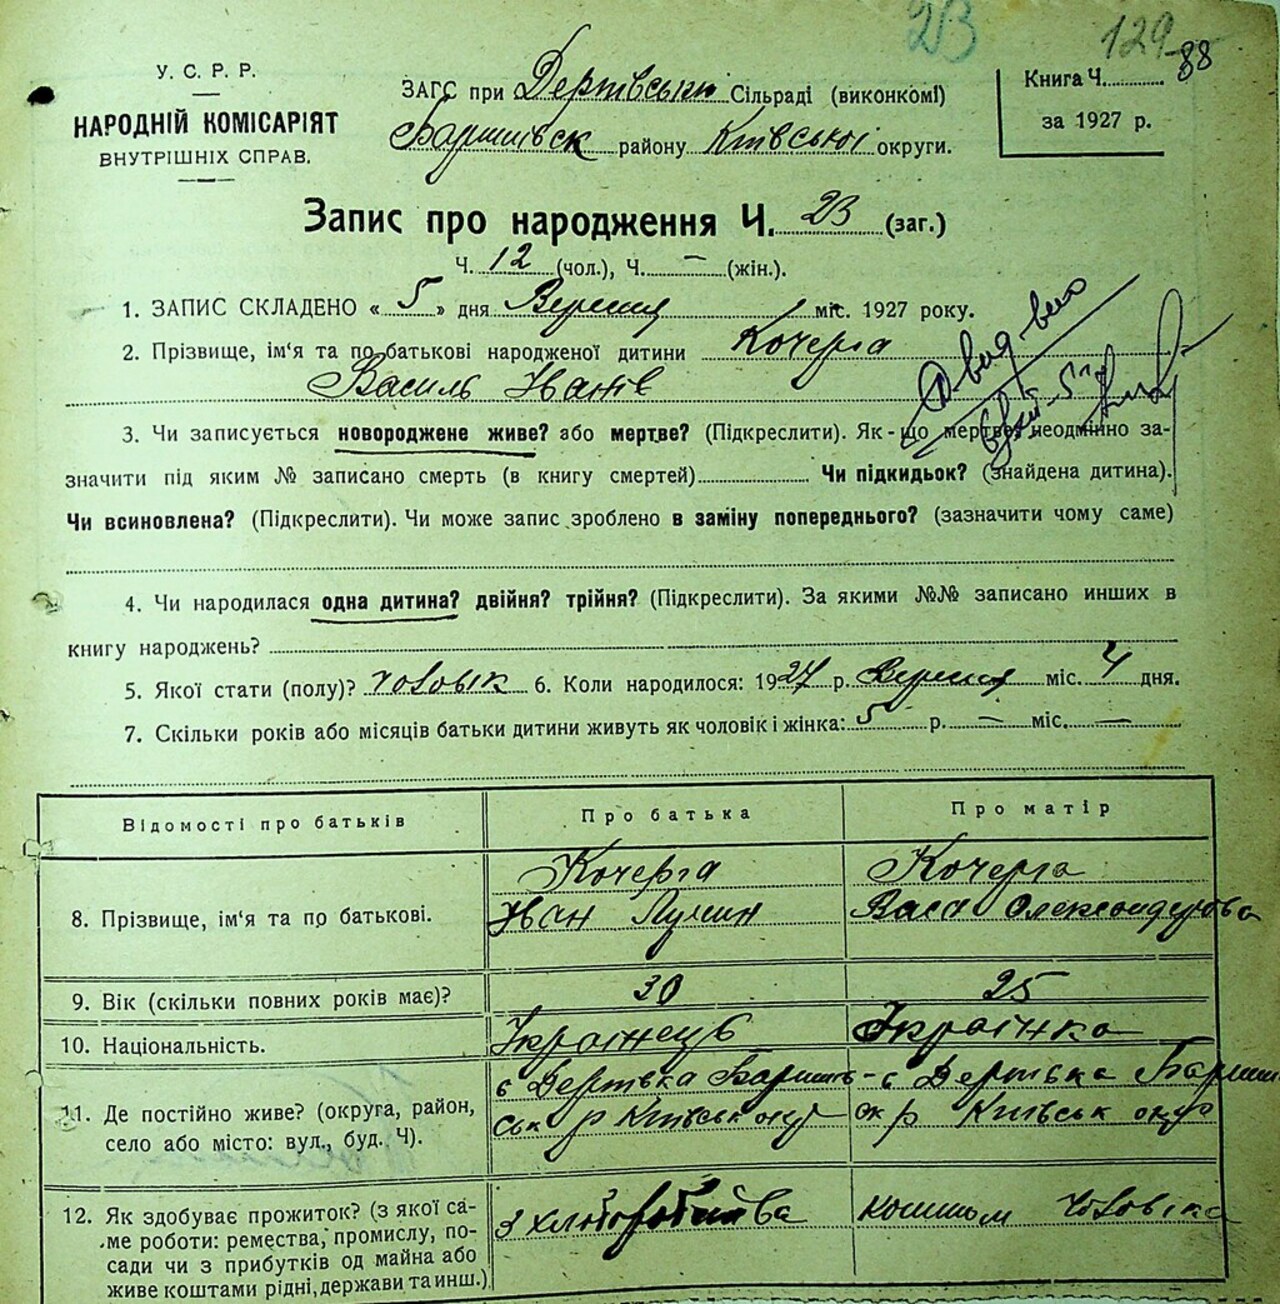 23
129
88
У. С. Р. Р.
НАРОДНІЙ КОМІСАРІЯТ
ВНУТРІШНІХ СПРАВ.
ЗАГС при Дернівській Сільраді (виконкомі)
Баришівськ району Київської округи.
Книга Ч.
за 1927 р.
Запис про народження Ч. 23 (заг.)
Ч. 12 (чол.), Ч. – (жін.).
1. ЗАПИС СКЛАДЕНО « 5 » дня Вересня міс. 1927 року.
2. Прізвище, ім'я та по батькові народженої дитини Кочерга
Василь Іванів
3. Чи записується новороджене живе? або мертве? (Підкреслити). Як-що мертве, неодмінно за-
значити під яким № записано смерть (в книгу смертей) Чи підкидьок? (знайдена дитина).
Чи всиновлена? (Підкреслити). Чи може запис зроблено в заміну попереднього? (зазначити чому саме)
4. Чи народилася одна дитина? двійня? трійня? (Підкреслити). За якими №№ записано инших в
книгу народжень?
5. Якої стати (полу)? чоловік 6. Коли народилося: 1927 р. Вересня міс. 4 дня.
7. Скільки років або місяців батьки дитини живуть як чоловік і жінка: 5 р. — міс. —
Відомості про батьків
Про батька
Про матір
8. Прізвище, ім'я та по батькові.
Кочерга
Іван
Кочерга
Олександрова
9. Вік (скільки повних років має)?
30
25
10. Національність.
Українець
Українка
11. Де постійно живе? (округа, район,
село або місто: вул., буд. Ч).
с Дернівка Баришів-
ськ р Київськ окр
с Дернівка Бариш
ськ р Київськ окр
12. Як здобуває прожиток? (з якої са-
ме роботи: ремества, промислу, по-
сади чи з прибутків од майна або
живе коштами рідні, держави та инш.)
З хлоборобства
коштом чоловіка